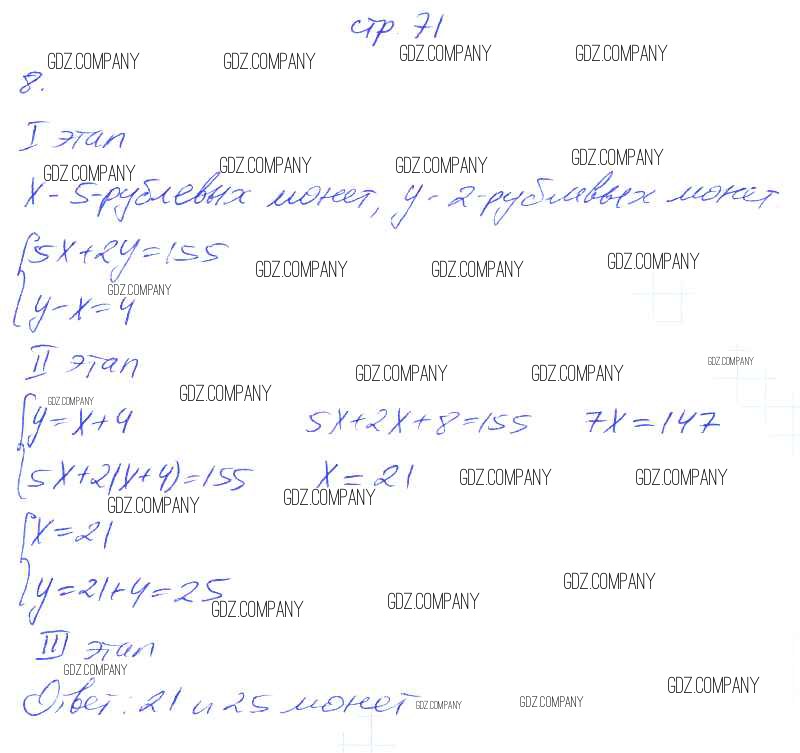 стр. 71
GDZ.COMPANY GDZ.COMPANY GDZ.COMPANY GDZ.COMPANY
8.
I этап
GDZ.COMPANY GDZ.COMPANY GDZ.COMPANY GDZ.COMPANY
x - 5-рублевых монет, y - 2-рублевых монет
5x+2y=155
GDZ.COMPANY GDZ.COMPANY GDZ.COMPANY
GDZ.COMPANY
y-x=4
II этап
GDZ.COMPANY GDZ.COMPANY GDZ.COMPANY
GDZ.COMPANY GDZ.COMPANY
y=x+4 5x+2x+8=155 7x=147
5x+2(x+4)=155 x=21 GDZ.COMPANY GDZ.COMPANY
GDZ.COMPANY GDZ.COMPANY
x=21
y=21+4=25 GDZ.COMPANY GDZ.COMPANY GDZ.COMPANY
III этап
GDZ.COMPANY
Ответ: 21 и 25 монет GDZ.COMPANY GDZ.COMPANY GDZ.COMPANY